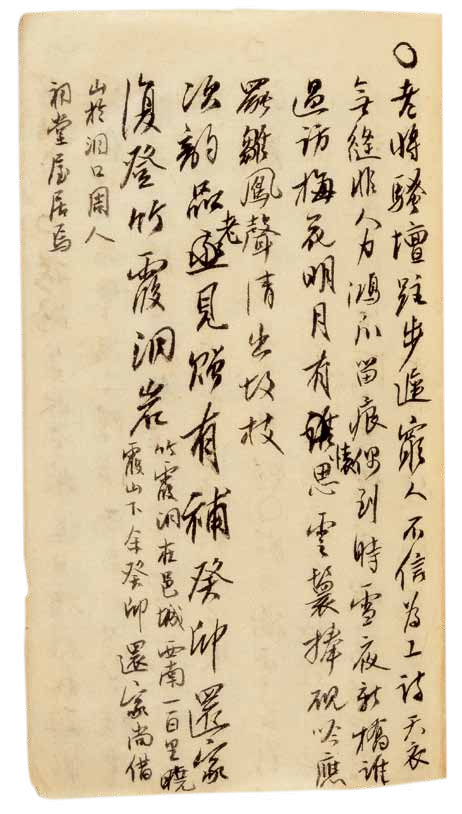 ○老將騷壇跬步遲窮人不信為工詩天衣
無縫非人力鴻爪留痕偶到時雪夜新橋誰
過訪梅花明月有懷思雲鬟捧硯吟應
罷雛鳳聲清出故枝
次韵品老見贈有補癸卯還家
復登竹霞洞岩
竹霞洞在邑城西南一百里曉
霞山下余癸卯還家尚借
山於洞口周人
祠堂屋居焉